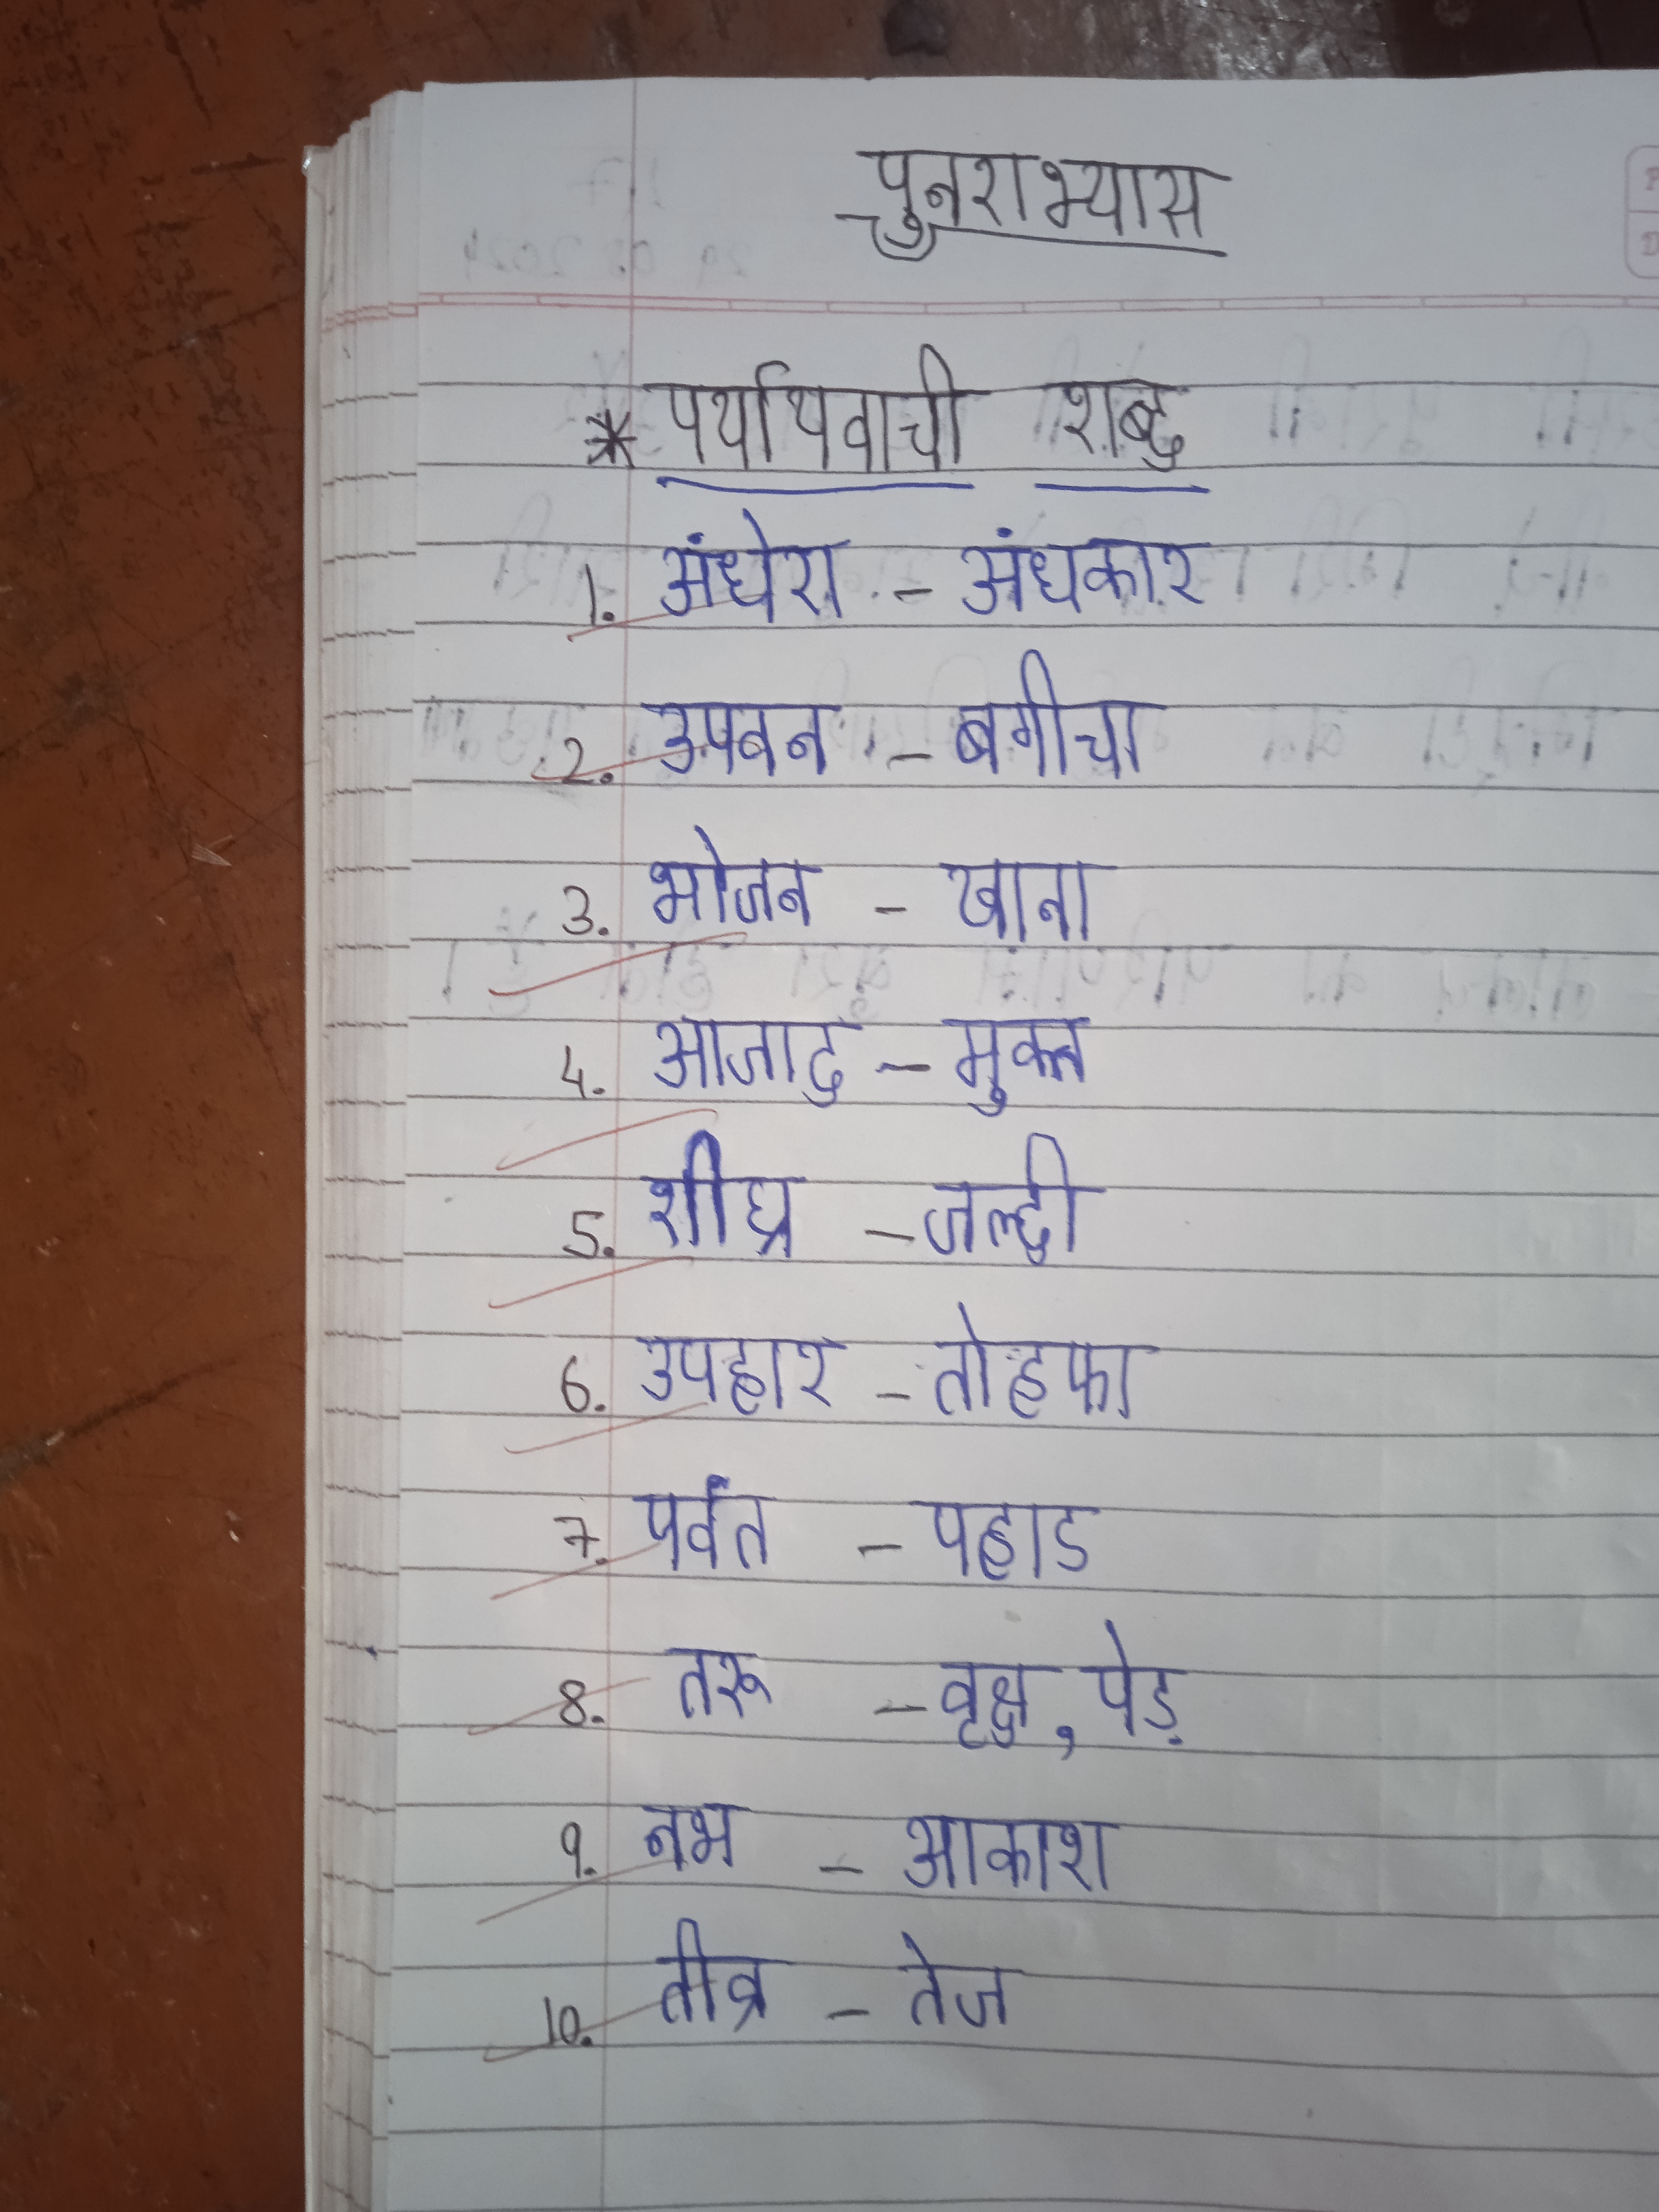 पुनराभ्यास
* पर्यायवाची शब्द
1. अंधेरा - अंधकार
2. उपवन - बगीचा
3. भोजन - खाना
4. आजाद - मुक्त
5. शीघ्र - जल्दी
6. उपहार - तोहफा
7. पर्वत - पहाड
8. तरू - वृक्ष, पेड़
9. नभ - आकाश
10. तीव्र - तेज